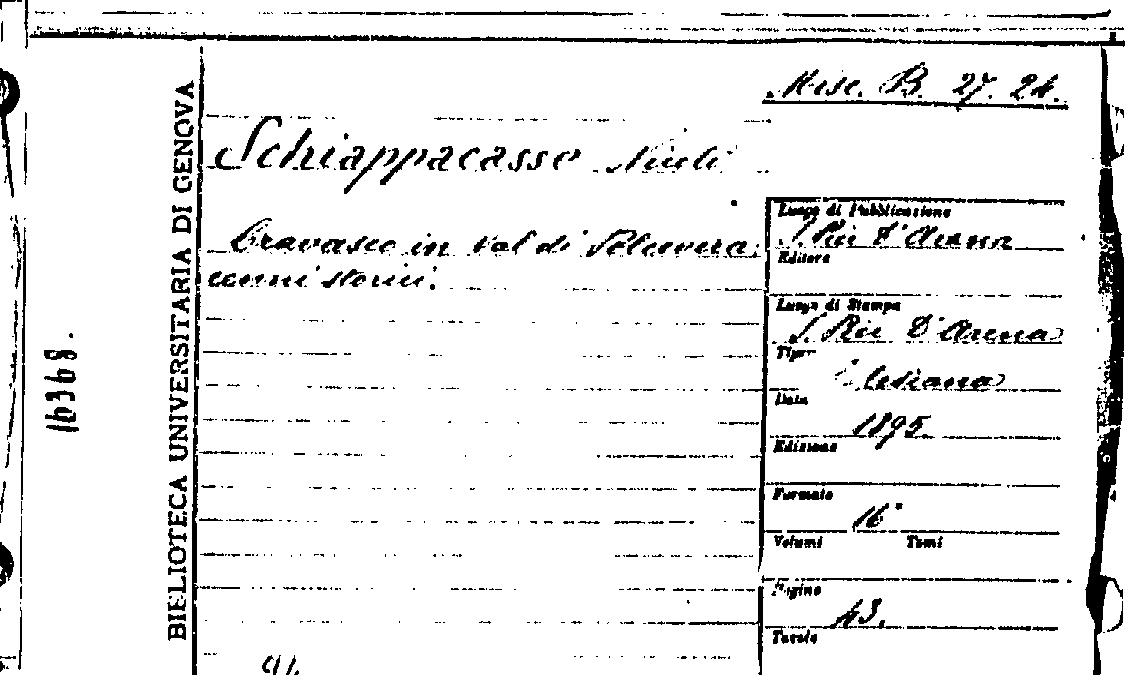 Misc. B. 27. 24.
Schiappacasse
Cravasco in val di Polcevera
cenni storici.
BIBLIOTECA UNIVERSITARIA DI GENOVA
16368.
Luogo di Pubblicazione
S. Pier d'Arena
Editore
Luogo di Stampa
S. Pier D'Arena
Tip
Data
1895
Edizione
Formato
16°
Volumi Tomi
Pagine
43.
Tavole